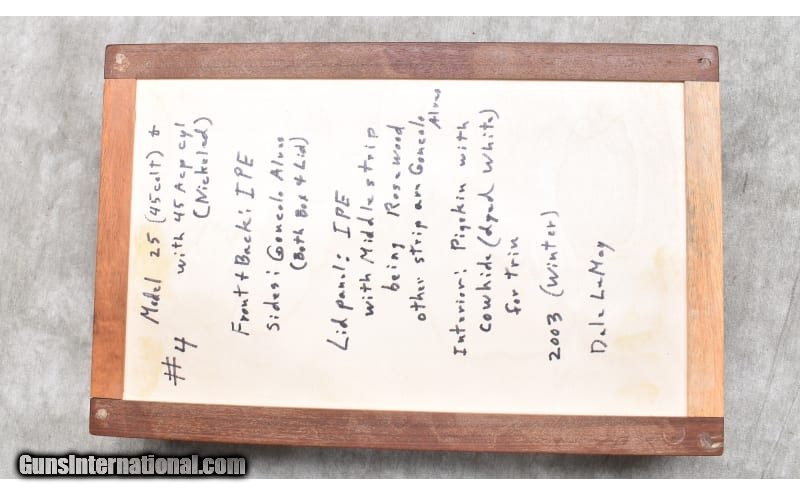 #4 Model 25 (45colt) +
with 45 Acp cyl
(Nickeled)
Front + Back: IPE
Sides: Goncolo Alves
(Both Box + Lid)
Lid panel: IPE
with Middle strip
being Rosewood
other strip are Goncolo
Alves
Interior: Pigskin with
cowhide (dyed white)
for trim
2003 (Winter)
Dale LaMay
GunsInternational.com